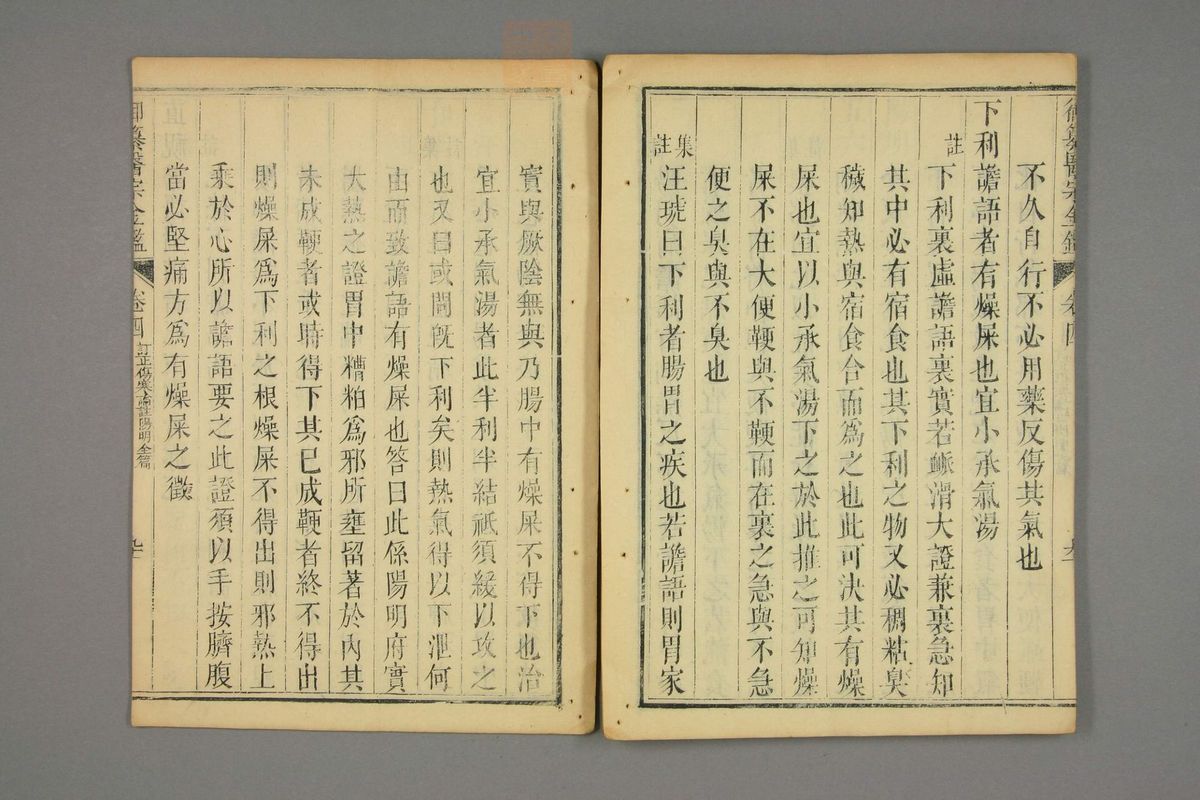 御纂醫宗金鑑
卷四
不久自行不必用藥反傷其氣也
下利譫語者有燥屎也宜小承氣湯
註
下利裏虛譫語裏實若䘑滑大證兼裏急知
其中必有宿食也其下利之物又必稠粘臭
穢知熱與宿食合而為之也此可決其有燥
屎也宜以小承氣湯下之於此推之可知燥
屎不在大便鞕與不鞕而在裏之急與不急
便之臭與不臭也
集註
汪琥曰下利者腸胃之疾也若譫語則胃家
實與厥陰無與乃腸中有燥屎不得下也治
宜小承氣湯者此半利半結祗須緩以攻之
也又曰或問旣下利矣則熱氣得以下泄何
由而致譫語有燥屎也答曰此係陽明府實
大熱之證胃中糟粕為邪所壅留著於內其
未成鞕者或時得下其已成鞕者終不得出
則燥屎爲下利之根燥屎不得出則邪熱上
乘於心所以譫語要之此證須以手按臍腹
當必堅痛方爲有燥屎之徵
御纂醫宗金鑑
卷四
訂正傷寒論註陽明全篇